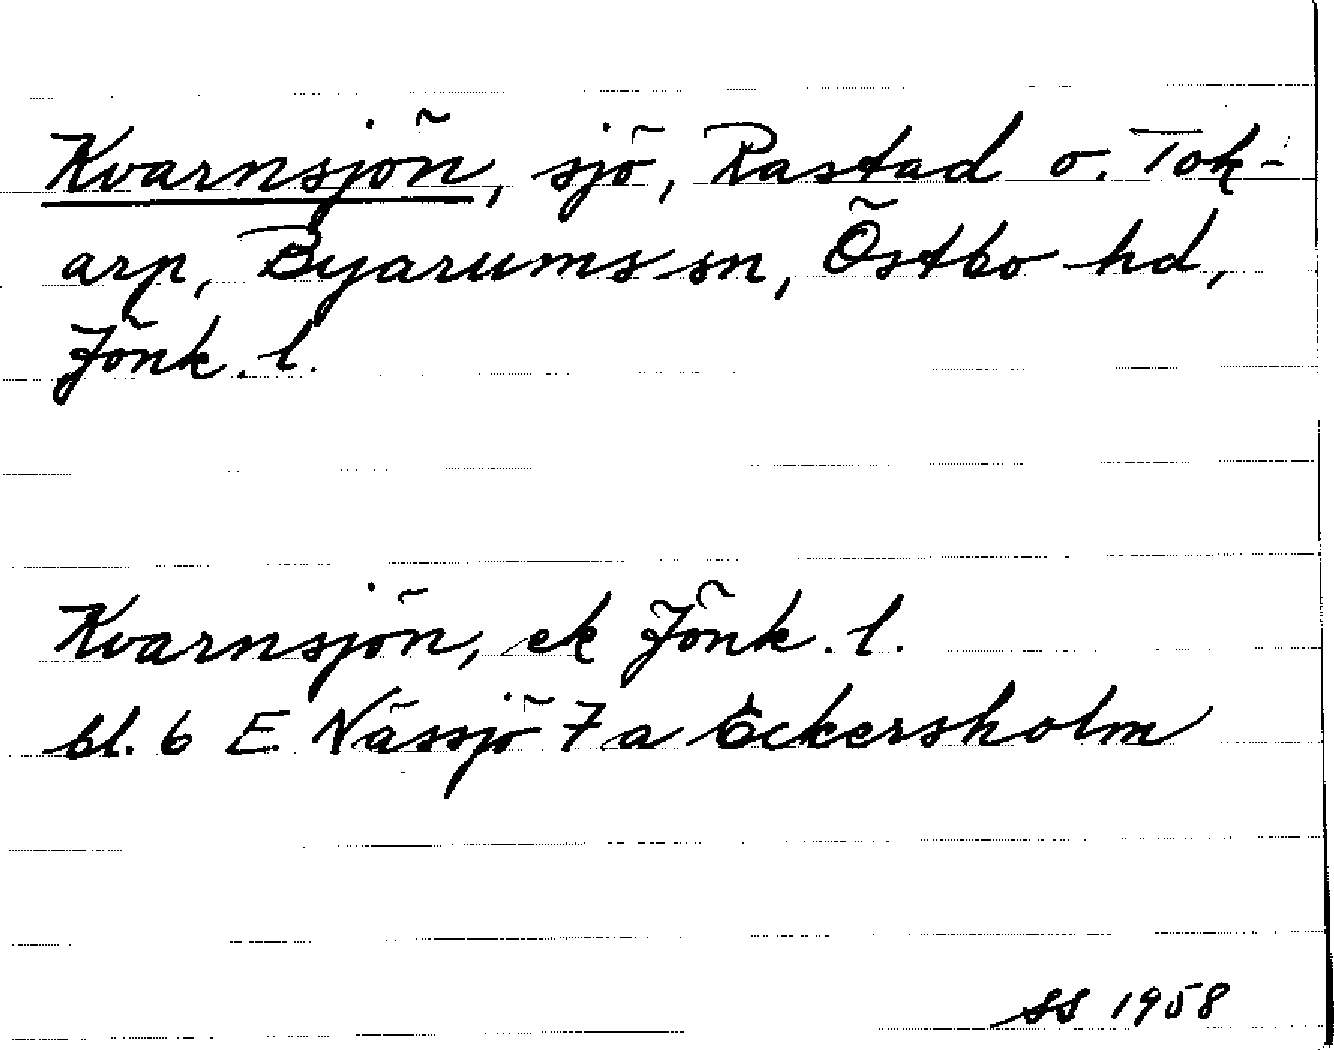 Kvarnsjön, sjö, Rastad o. Tok-
arp, Byarums sn, Östbo hd,
Jönk. l.
Kvarnsjön, ek Jönk. l.
bl. 6 E. Nässjö 7 a Eckersholm
SS 1958